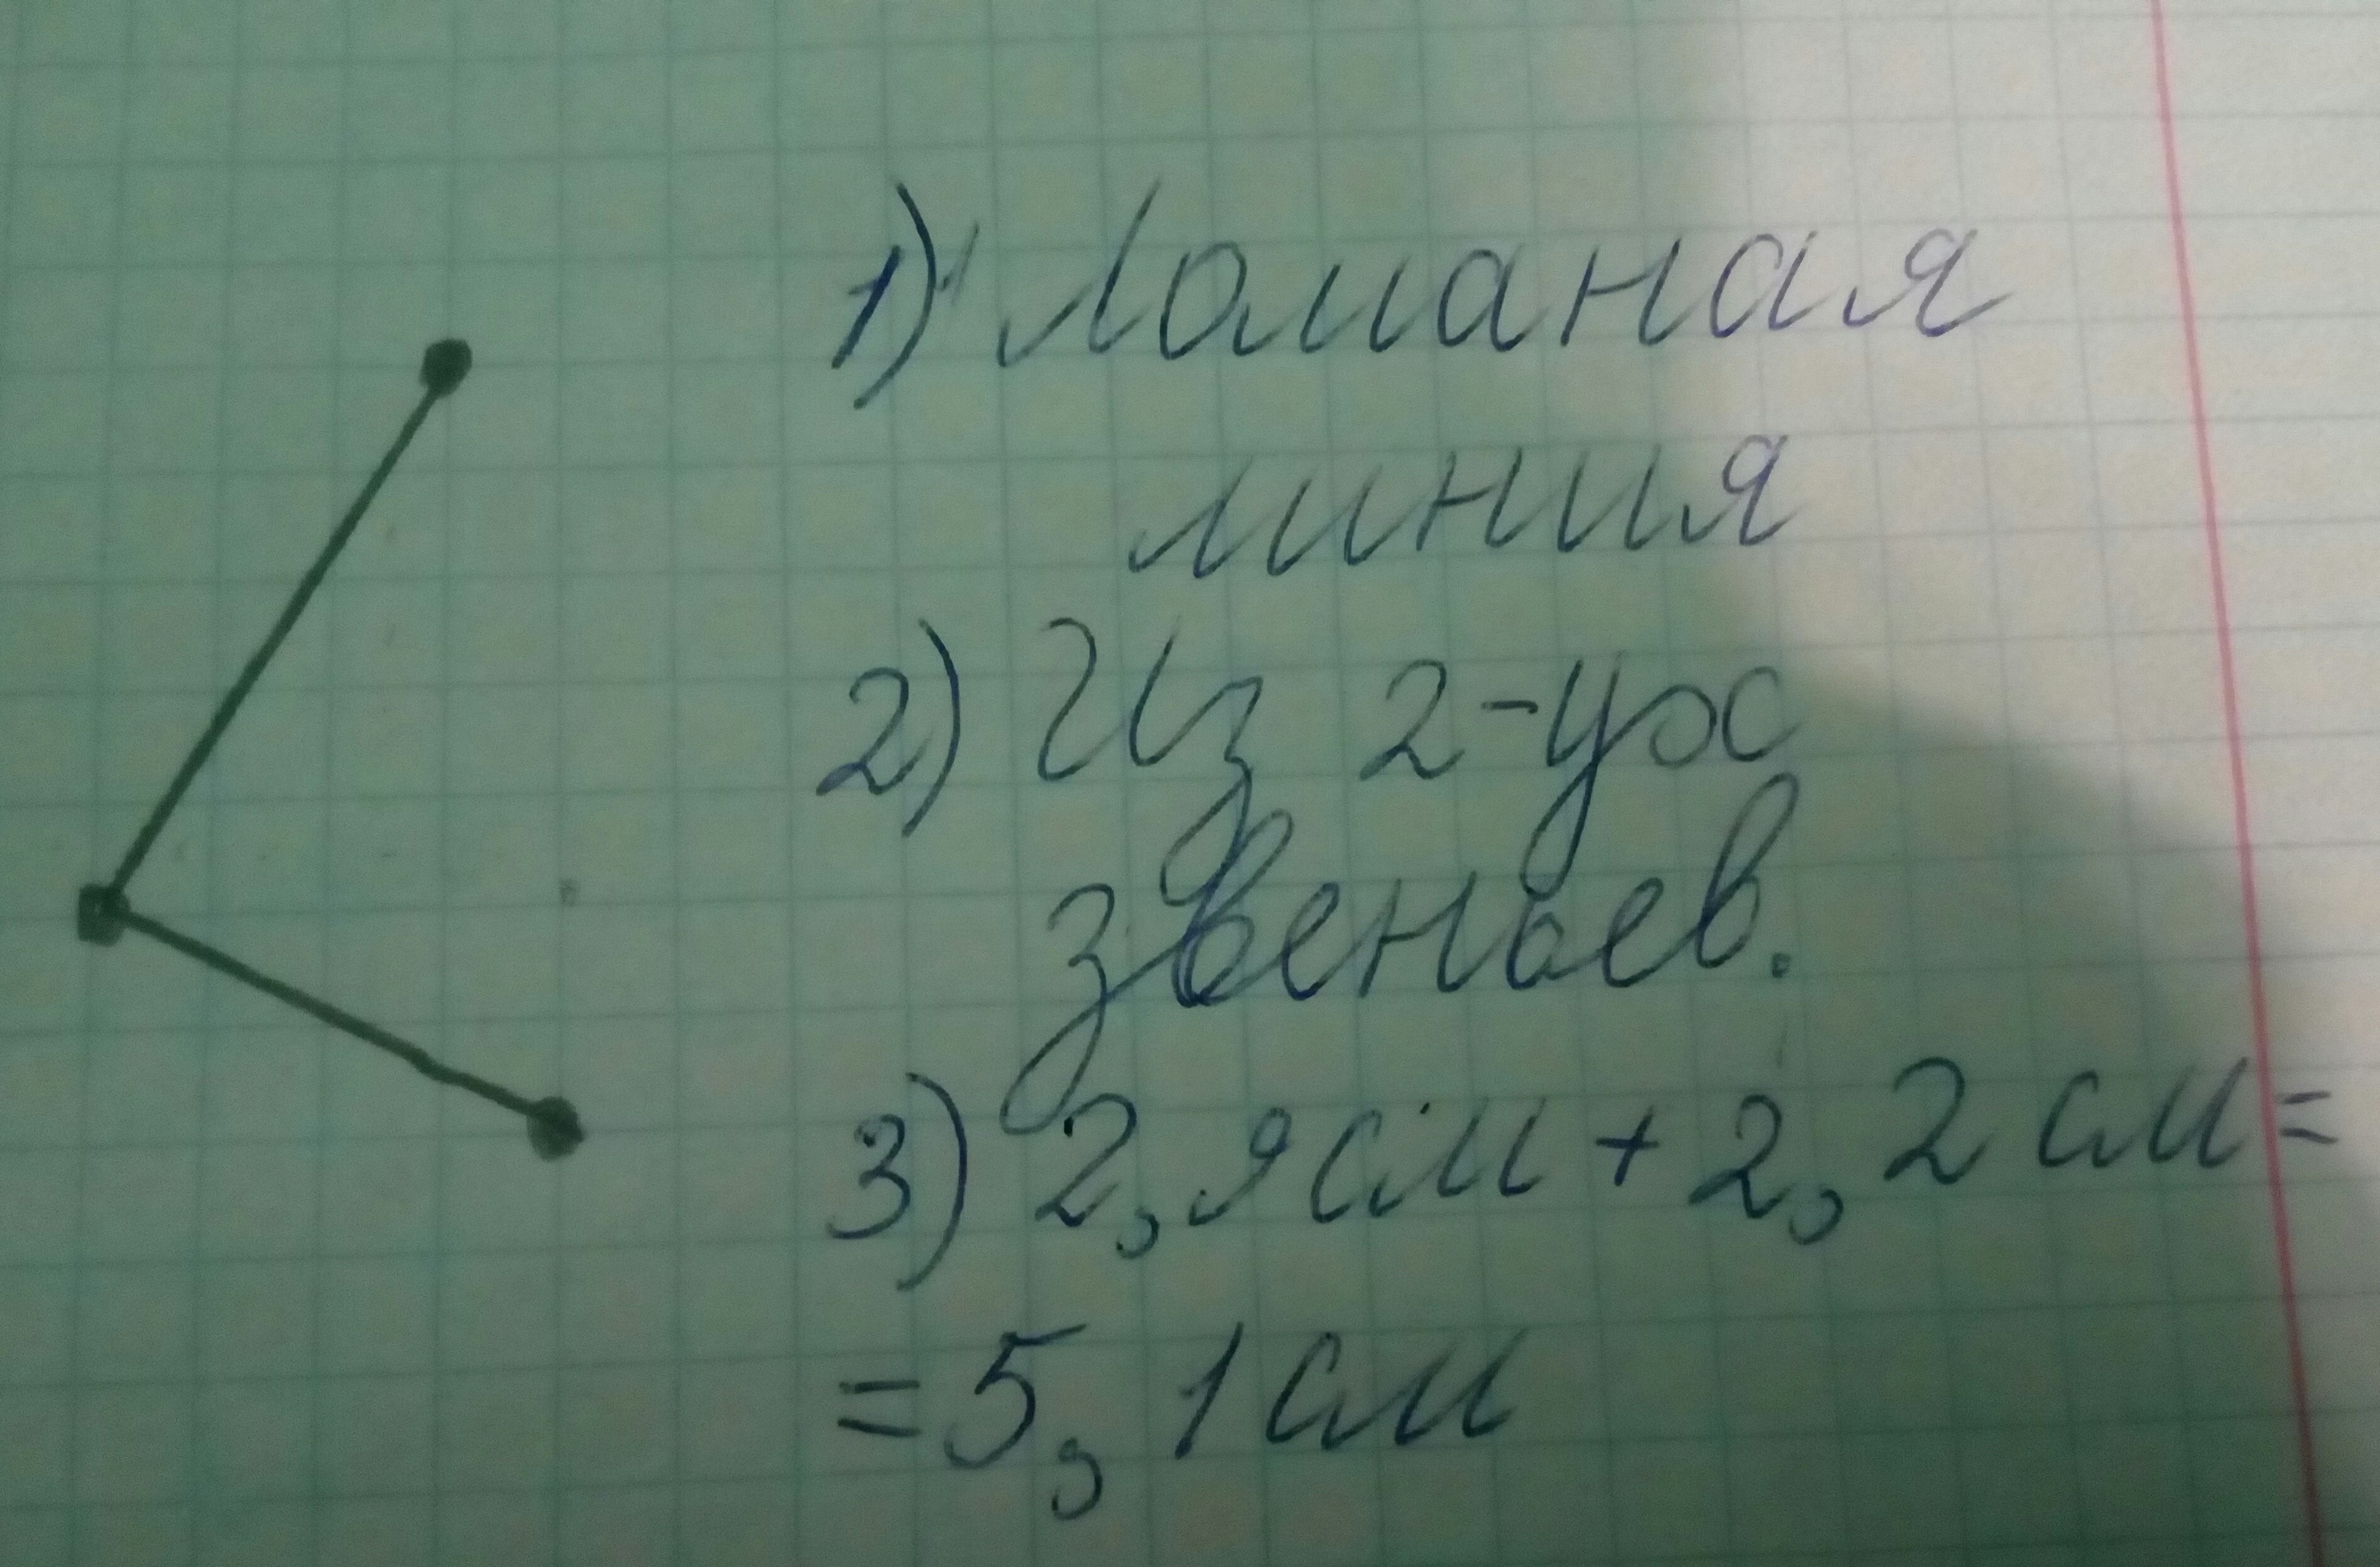 1) Ломаная
линия
2) Из 2-ух
звеньев.
3) 2,9см + 2,2 см =
= 5,1 см